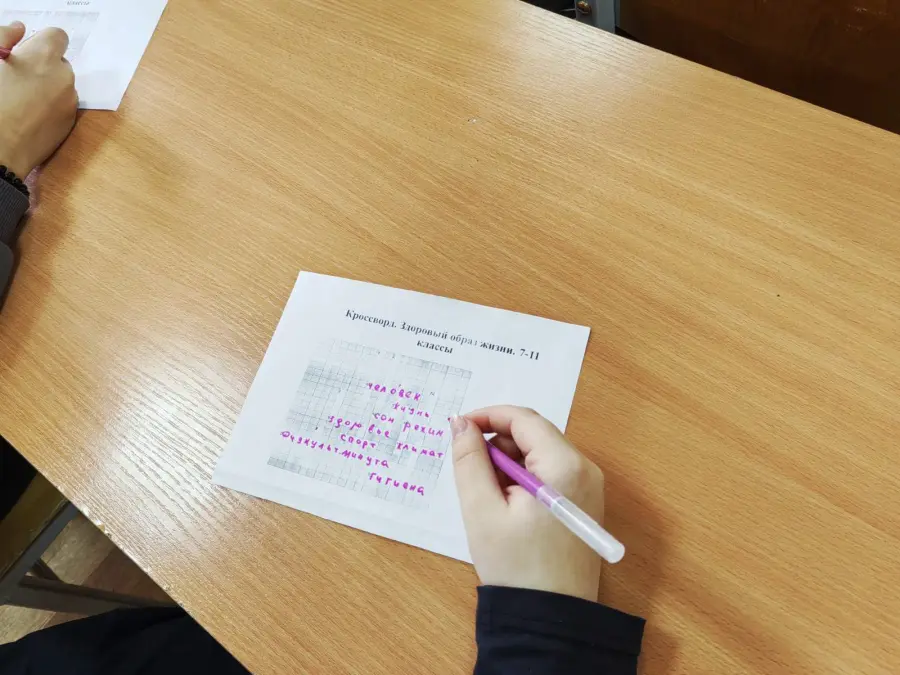 Кроссворд. Здоровый образ жизни. 7-11
классы
человек
жизнь
сон режим
здоровье климат
спорт
физкультминута
гигиена